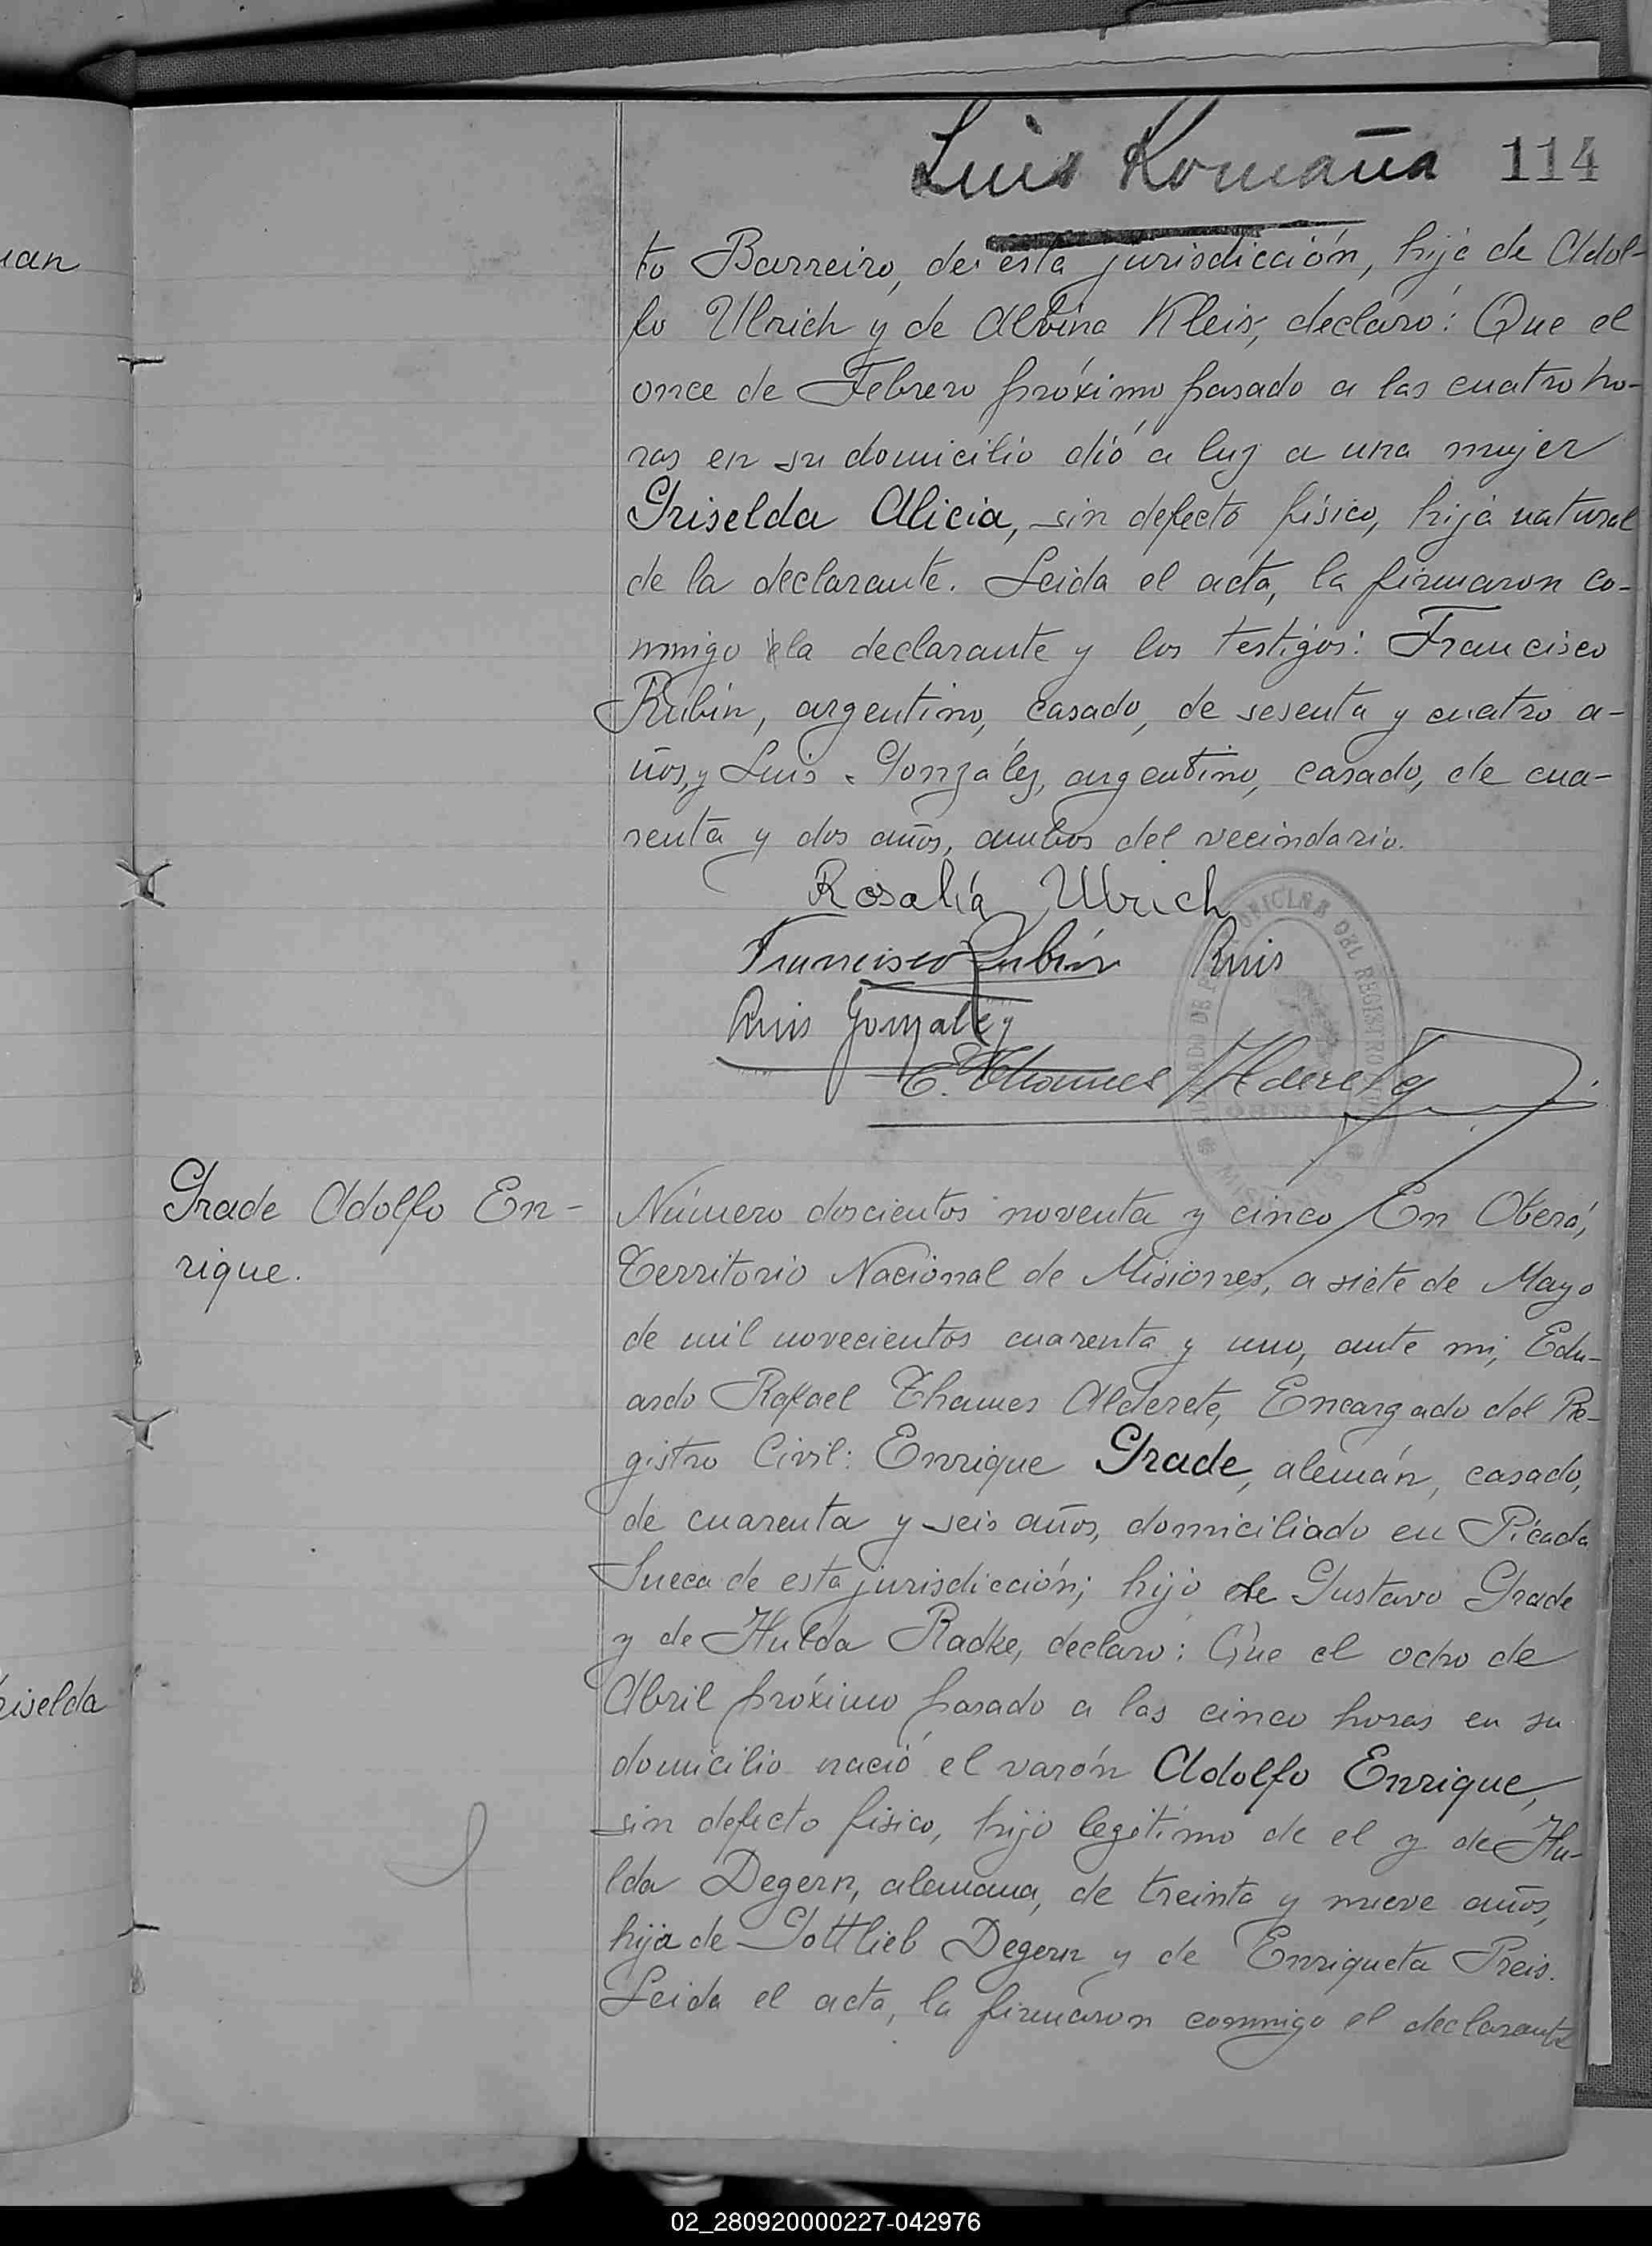 Luis Romaña 114
uan
to Barreiro, de esta jurisdicción, hija de Adol-
fo Ulrich y de Albina Kleis, declaró: Que el
once de Febrero próximo pasado a las cuatro ho-
ras en su domicilio dió a luz a una mujer
Griselda Alicia, sin defecto físico, hija natural
de la declarante. Leida el acta, la firmaron co-
nmigo la declarante y los testigos: Francisco
Rubín, argentino, casado, de sesenta y cuatro a-
ños, y Luis González, argentino, casado, de cua-
renta y dos años, ambos del vecindario.
Rosalía Ulrich
Francisco Rubín Ruis
Ruis Gonzalez
E. Thames Alderete
OFICINA DEL REGISTRO
Grade Adolfo En-
rique.
Número doscientos noventa y cinco En Oberá,
Territorio Nacional de Misiones, a siete de Mayo
de mil novecientos cuarenta y uno, ante mi, Edu-
ardo Rafael Thames Alderete, Encargado del Re-
gistro Civil: Enrique Grade, alemán, casado,
de cuarenta y seis años, domiciliado en Picada
Sueca de esta jurisdicción; hijo de Gustavo Grade
y de Hulda Radke, declaro: Que el ocho de
Abril próximo pasado a las cinco horas en su
domicilio nació el varón Adolfo Enrique,
sin defecto fisico, hijo legítimo de el y de Hu-
lda Degern, alemana, de treinta y nueve años,
hija de Gottlieb Degern y de Enriqueta Preis.
Leida el acta, la firmaron conmigo el declarante
riselda
02_280920000227-042976